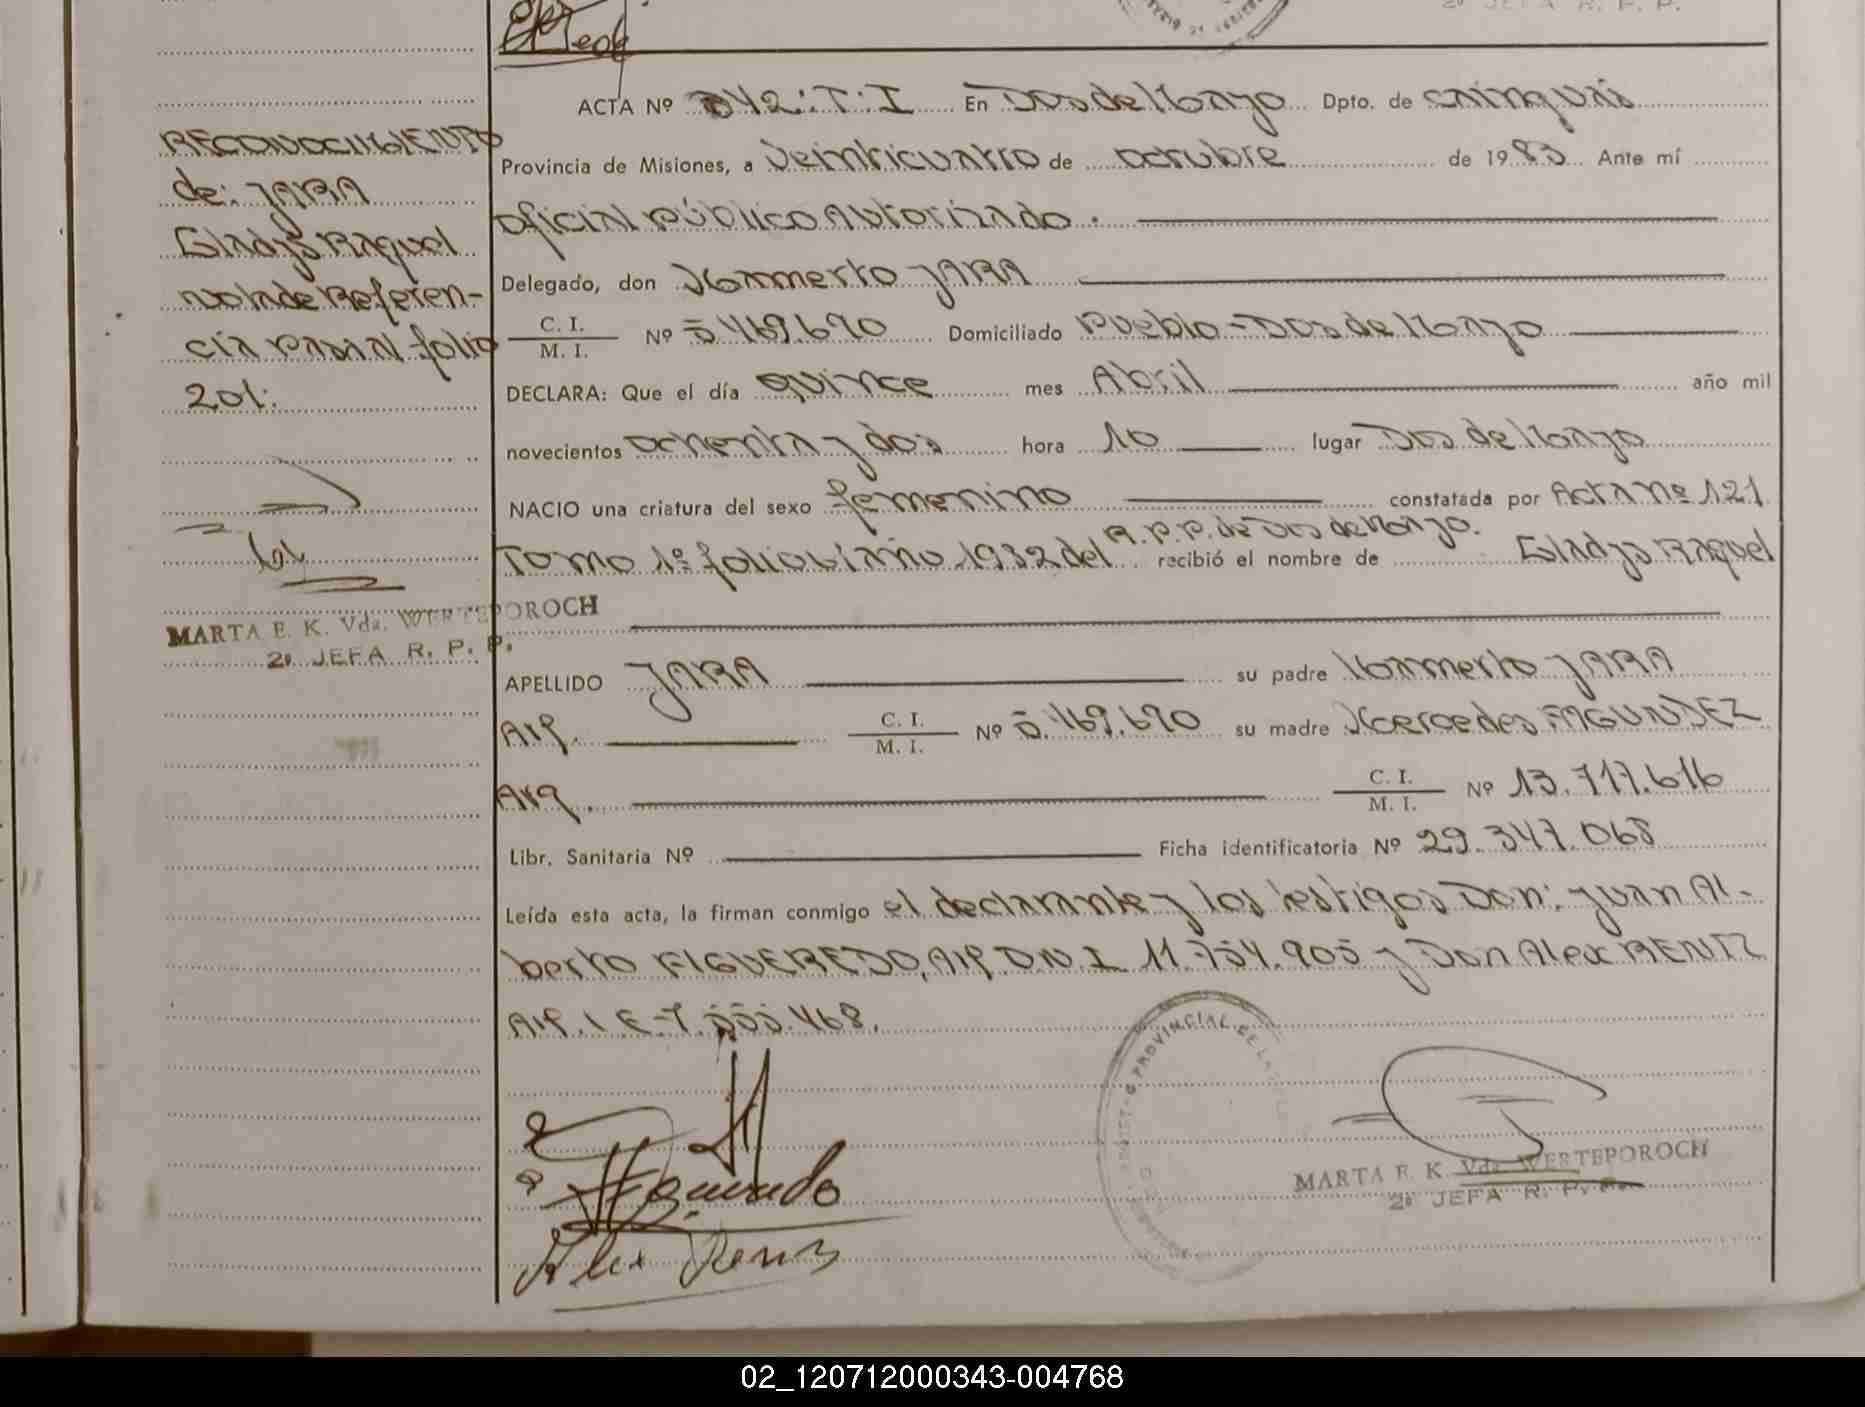 2º JEFA R. P. P.
ACTA Nº 042:T:I En Dos de Mayo Dpto. de Cainguás
RECONOCIMIENTO
Provincia de Misiones, a Veinticuatro de octubre de 1983 Ante mí
de: JARA
oficial público Autorizado.
Gladys Raquel
Delegado, don Mamerto JARA
nota de Referen-
C. I.
M. I. Nº 5.469.690 Domiciliado Pueblo-Dos de Mayo
cia folio
201.
DECLARA: Que el día quince mes Abril año mil
novecientos ochenta y dos hora 10 lugar Dos de Mayo
NACIO una criatura del sexo femenino constatada por Acta Nº 121
R.P.P. de Dos de Mayo.
Tomo 1º folio 61 año 1982 del recibió el nombre de Gladys Raquel
MARTA E. K. Vda. WERTEPOROCH
2º JEFA R. P. P.
APELLIDO JARA su padre Mamerto JARA
Arg. C. I.
M. I. Nº 5.469.690 su madre Mercedes FAGUNDEZ
Arg. C. I.
M. I. Nº 13.717.616
Libr. Sanitaria Nº Ficha identificatoria Nº 29.347.068
Leída esta acta, la firman conmigo el declarante y los testigos Don: Juan Al-
berto FIGUEREDO, Arg. D.N.I 11.754.905 y Don Alex BENITZ
Arg. L E-7.555.468.
PROVINCIAL DE
MARTA E. K. Vda. WERTEPOROCH
2º JEFA R. P. P.
Alex
02_120712000343-004768